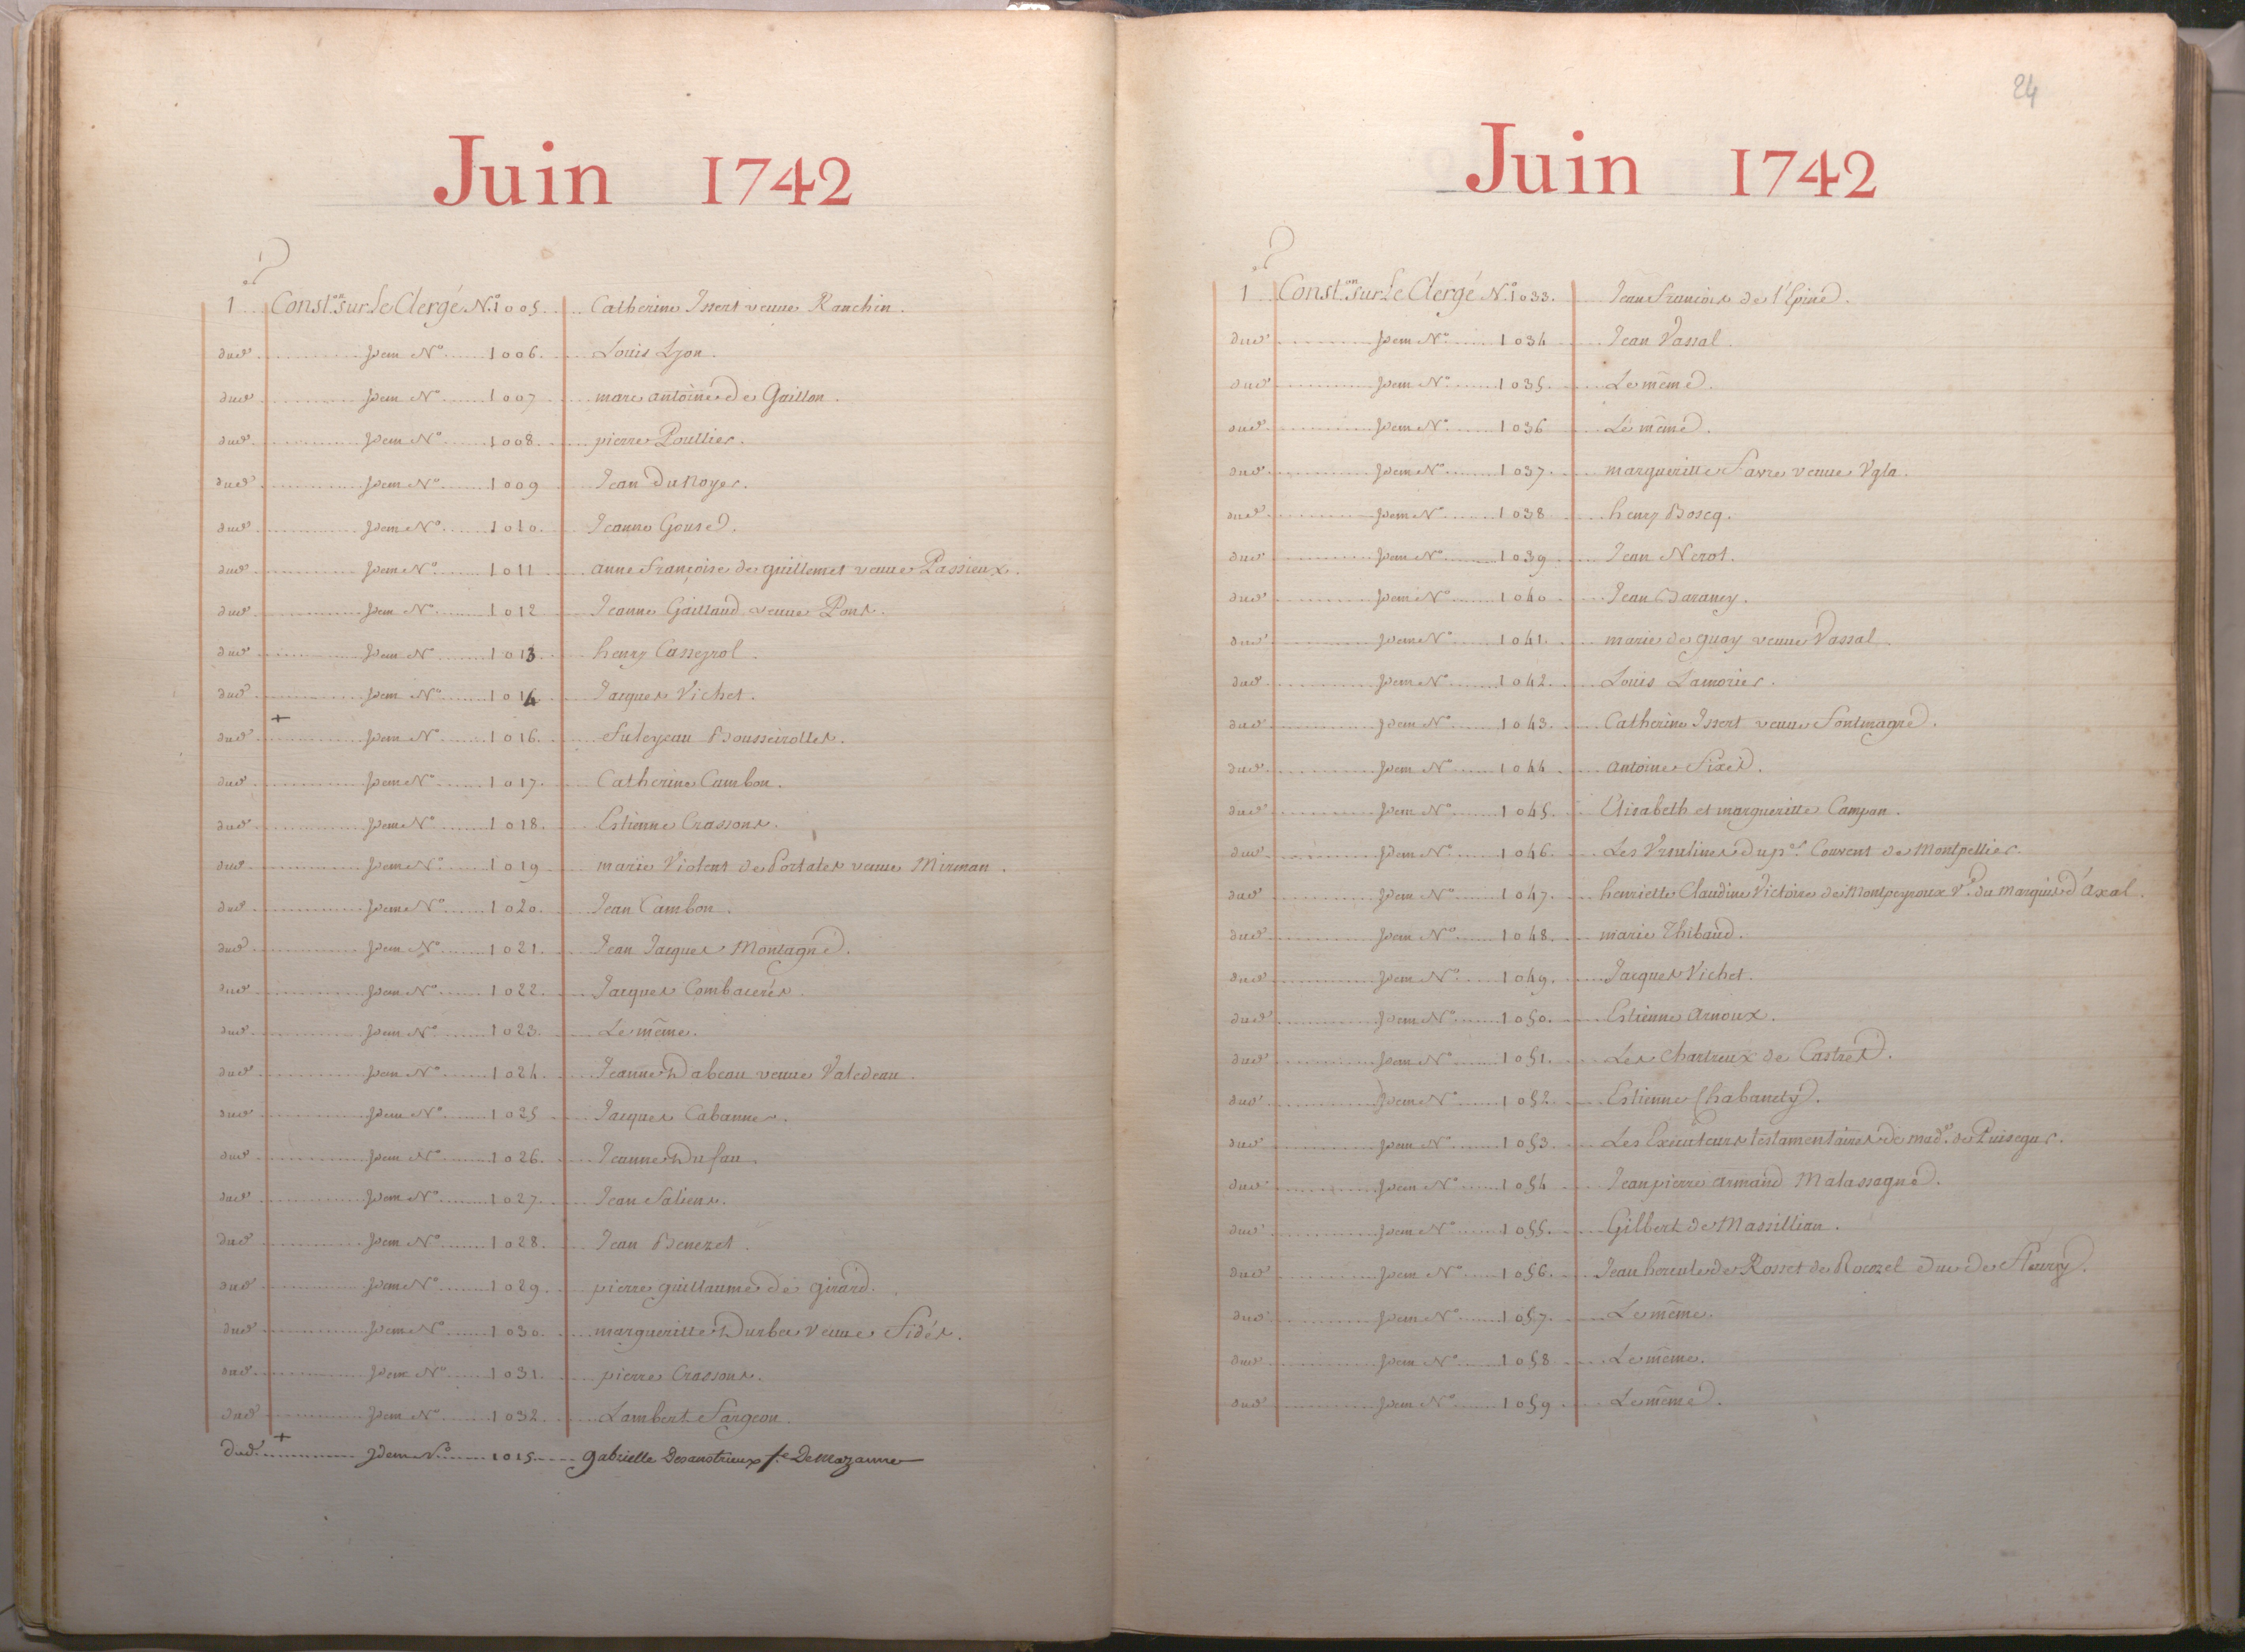 Juin 1742
1er Constons sur le Clergé No. 1005. Catherine Issert veuve Ranchin.
dud. Idem No. 1006. Louis Lyon.
dud. Idem No. 1007 marc antoine de Gaillon.
dud. Idem No. 1008. pierre Poullier.
dud. Idem No. 1009 Jean Dunoyer.
dud. Idem No. 1010. Jeanne Gouse.
dud. Idem No. 1011 anne françoise de guillemet veuve Passieux.
dud. Idem No. 1012 Jeanne Gaillaud veuve Pons.
dud. Idem No. 1013. henry Casseyrol.
dud. Idem No. 1014 Jacques Vichet.
dud. + Idem No. 1016. Bousseirolles.
dud. Idem No. 1017. Catherine Cambon.
dud. Idem No. 1018. Estienne Crassous.
dud. Idem No. 1019 marie Violent de Portales veuve Mirman.
dud. Idem No. 1020. Jean Cambon.
dud. Idem No. 1021. Jean Jacques Montagne.
dud. Idem No. 1022. Jacques Combacerés.
dud. Idem No. 1023. Le même.
dud. Idem No. 1024. Jeanne Dabeau veuve Valedeau.
dud. Idem No. 1025 Jacques Cabannes.
dud. Idem No. 1026. Jeanne Dufau.
dud. Idem No. 1027. Jean Saliens.
dud. Idem No. 1028. Jean Benezet.
dud. Idem No. 1029. pierre guillaume de girard.
dud. Idem No. 1030. margueritte Durbec veuve Fidés.
dud. Idem No. 1031. pierre Crassous.
dud. Idem No. 1032. Lambert Fargeon.
dud. + Idem No. 1015. gabrielle fe. De Mazanne
24
Juin 1742
1er Conston sur le Clergé No. 1033. Jean françois de l'Epine.
dud. Idem No. 1034 Jean Vassal.
dud. Idem No. 1035. Le même.
dud. Idem No. 1036 Le même.
dud. Idem No. 1037. margueritte Favre veuve Vgla.
dud. Idem No. 1038 henry Boscq.
dud. Idem No. 1039 Jean Nerot.
dud. Idem No. 1040 Jean Barancy.
dud. Idem No. 1041. marie de guay veuve Vassal.
dud. Idem No. 1042. Louis Lamorier.
dud. Idem No. 1043. Catherine Issert veuve Fontmagne.
dud. Idem No. 1044 antoine Sixei.
dud. Idem No. 1045. Elisabeth et margueritte Campan.
dud. Idem No. 1046. Les Vrsulines du pr. Couvent de Montpellier.
dud. Idem No. 1047. henriette Claudine Victoire de Montpeyroux Ve. du marquis d'Axal.
dud. Idem No. 1048. marie Thibaud.
dud. Idem No. 1049. Jacques Vichet.
dud. Idem No. 1050. Estienne arnoux.
dud. Idem No. 1051. Les Chartreux de Castres.
dud. Idem No. 1052. Estienne Chabanety.
dud. Idem No. 1053. Les Executeurs testamentaires de made. de Puisegur.
dud. Idem No. 1054 Jean pierre armand Malassagne.
dud. Idem No. 1055. Gilbert de Massillian.
dud. Idem No. 1056. Jean hercule de Rosset de Rocozel duc de Fleury.
dud. Idem No. 1057. Le même.
dud. Idem No. 1058 Le même.
dud. Idem No. 1059 Le même.